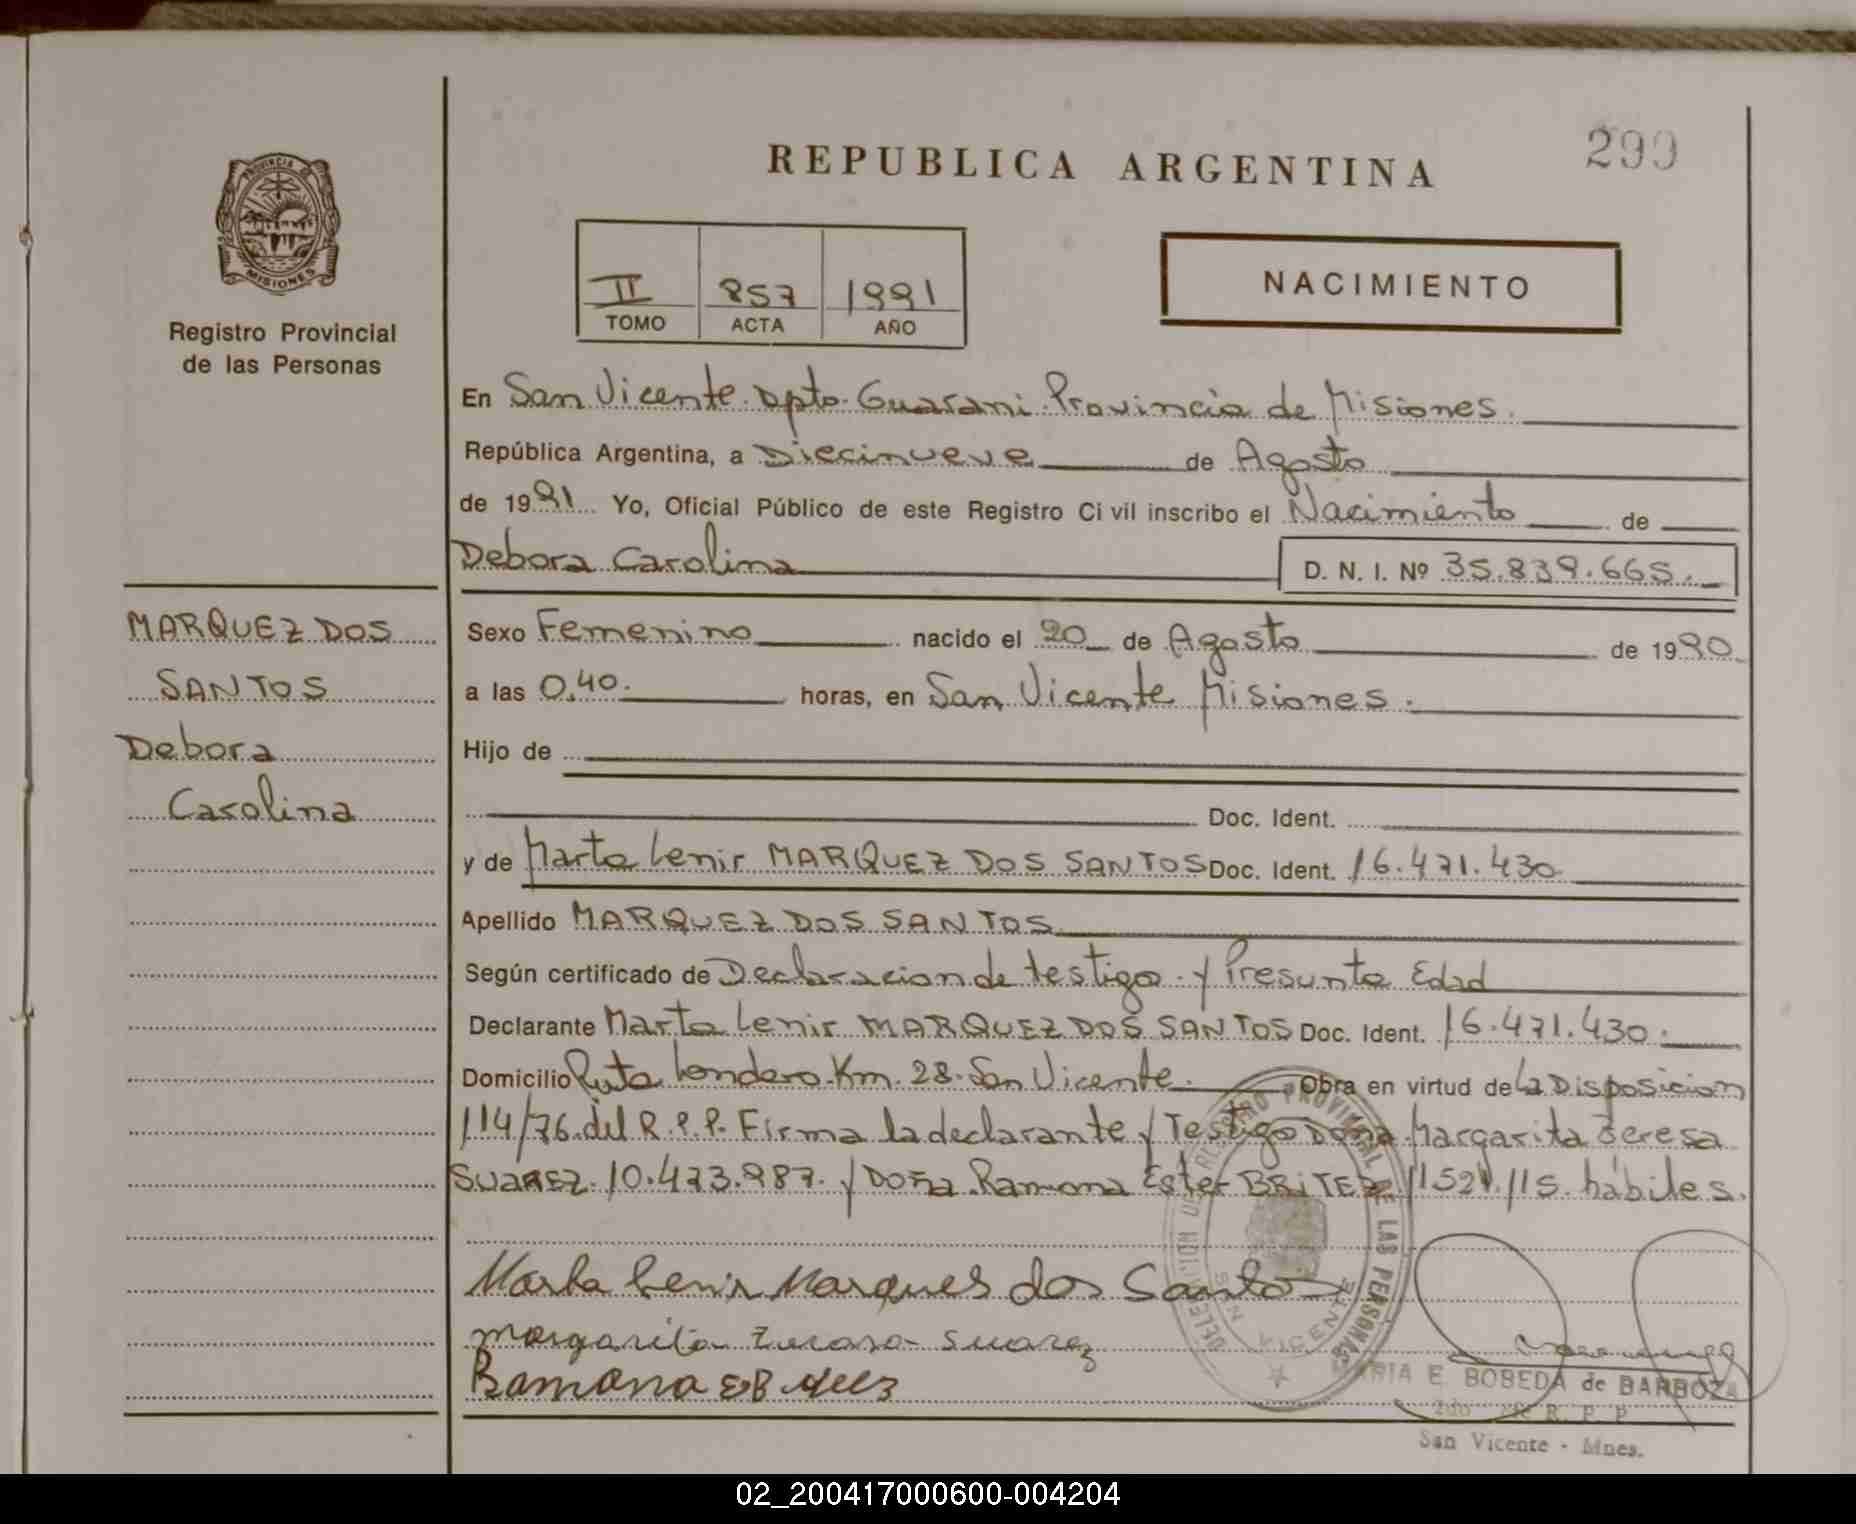 299
REPUBLICA ARGENTINA
PROVINCIA DE
MISIONES
Registro Provincial
de las Personas
II 857 1991
TOMO ACTA AÑO
NACIMIENTO
En San Vicente Dpto. Guarani Provincia de Misiones.
República Argentina, a Diecinueve de Agosto
de 1991 Yo, Oficial Público de este Registro Civil inscribo el Nacimiento de
Debora Carolina D. N. I. Nº 35.839.665.
MARQUEZ DOS
SANTOS
Debora
Carolina
Sexo Femenino nacido el 20 de Agosto de 1990
a las 0,40. horas, en San Vicente Misiones.
Hijo de
Doc. Ident.
y de Marta Lenir MARQUEZ DOS SANTOS Doc. Ident. 16.471.430
Apellido MARQUEZ DOS SANTOS
Según certificado de Declaracion de testigo y Presunta Edad
Declarante Marta Lenir MARQUEZ DOS SANTOS Doc. Ident. 16.471.430.
Domicilio Ruta Londero Km. 28. San Vicente. Obra en virtud de La Disposicion
114/76 del R.P.P. Firma la declarante y Testigo Doña Margarita Teresa
SUAREZ 10.473.987. y Doña Ramona Ester BRITEZ hábiles.
Marta Lenir Marques dos Santos
Margarita Suarez
Ramona
REGISTRO PROVINCIAL DE LAS PERSONAS
SAN VICENTE
MARIA E. BOBEDA de BARBOZA
2do Jefe R. P. P.
San Vicente - Mnes.
02_200417000600-004204